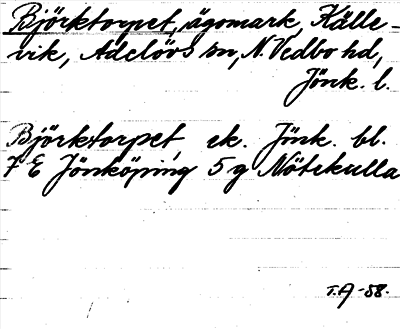 Björktorpet, ägomark, Källe-
vik, Adelövs sn, N. Vedbo hd,
Jönk. l.
Björktorpet, ek. Jönk. bl.
7 E Jönköping 5 g Nötekulla
T.A -58.